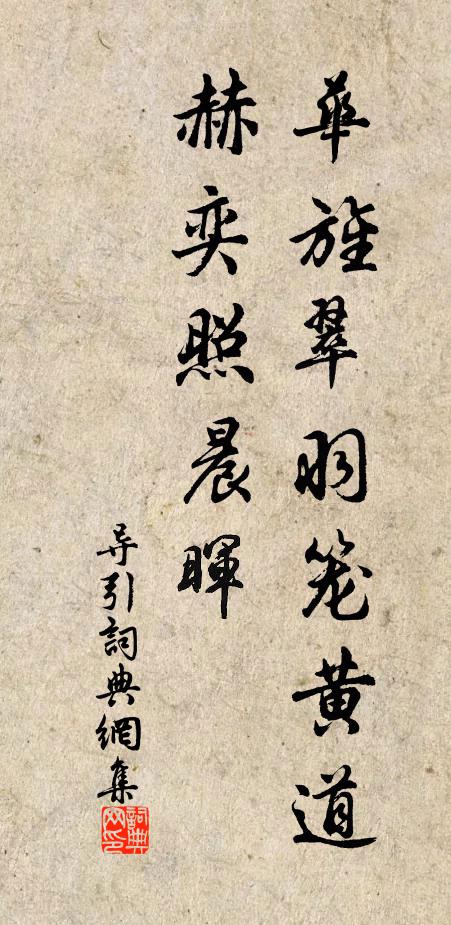 華旌翠羽笼黄道
赫奕照晨暉
导引詞典網集
詞典网印